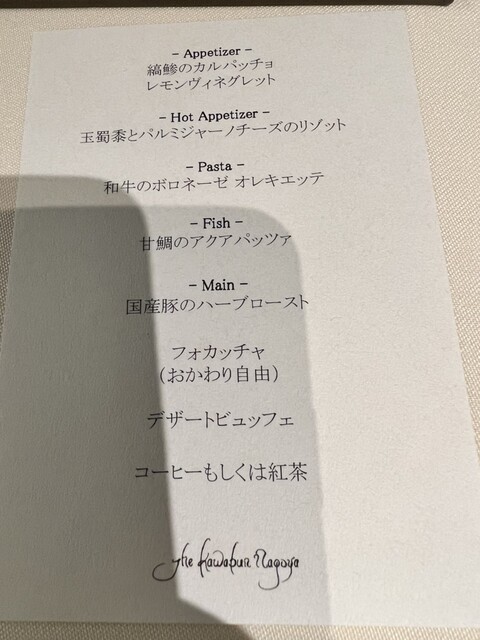 - Appetizer -
縞鯵のカルパッチョ
レモンヴィネグレット
- Hot Appetizer -
玉蜀黍とパルミジャーノチーズのリゾット
- Pasta -
和牛のボロネーゼ オレキエッテ
- Fish -
甘鯛のアクアパッツァ
- Main -
国産豚のハーブロースト
フォカッチャ
（おかわり自由）
デザートビュッフェ
コーヒーもしくは紅茶
The Kawabun Nagoya